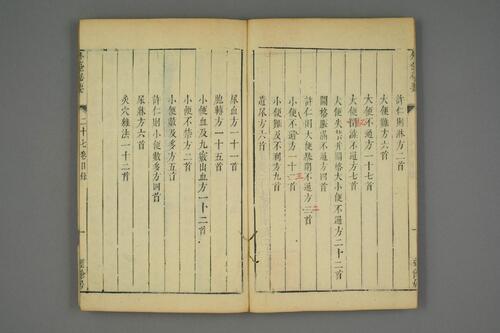 許仁則淋方二首
大便難方六首
大便不通方一十七首
大便祕澀不通方七首
大便失禁并關格大小便不通方二十二首
關格脹滿不通方四首
許仁則大便暴閉不通方二首
小便不通方一十三首
小便難及不利方九首
遺尿方六首
尿血方一十一首
胞轉方一十五首
小便血及九竅出血方一十二首
小便不禁方二首
小便數及多方五首
許仁則小便數多方四首
尿牀方六首
灸穴雜法一十二首
二十七卷目錄